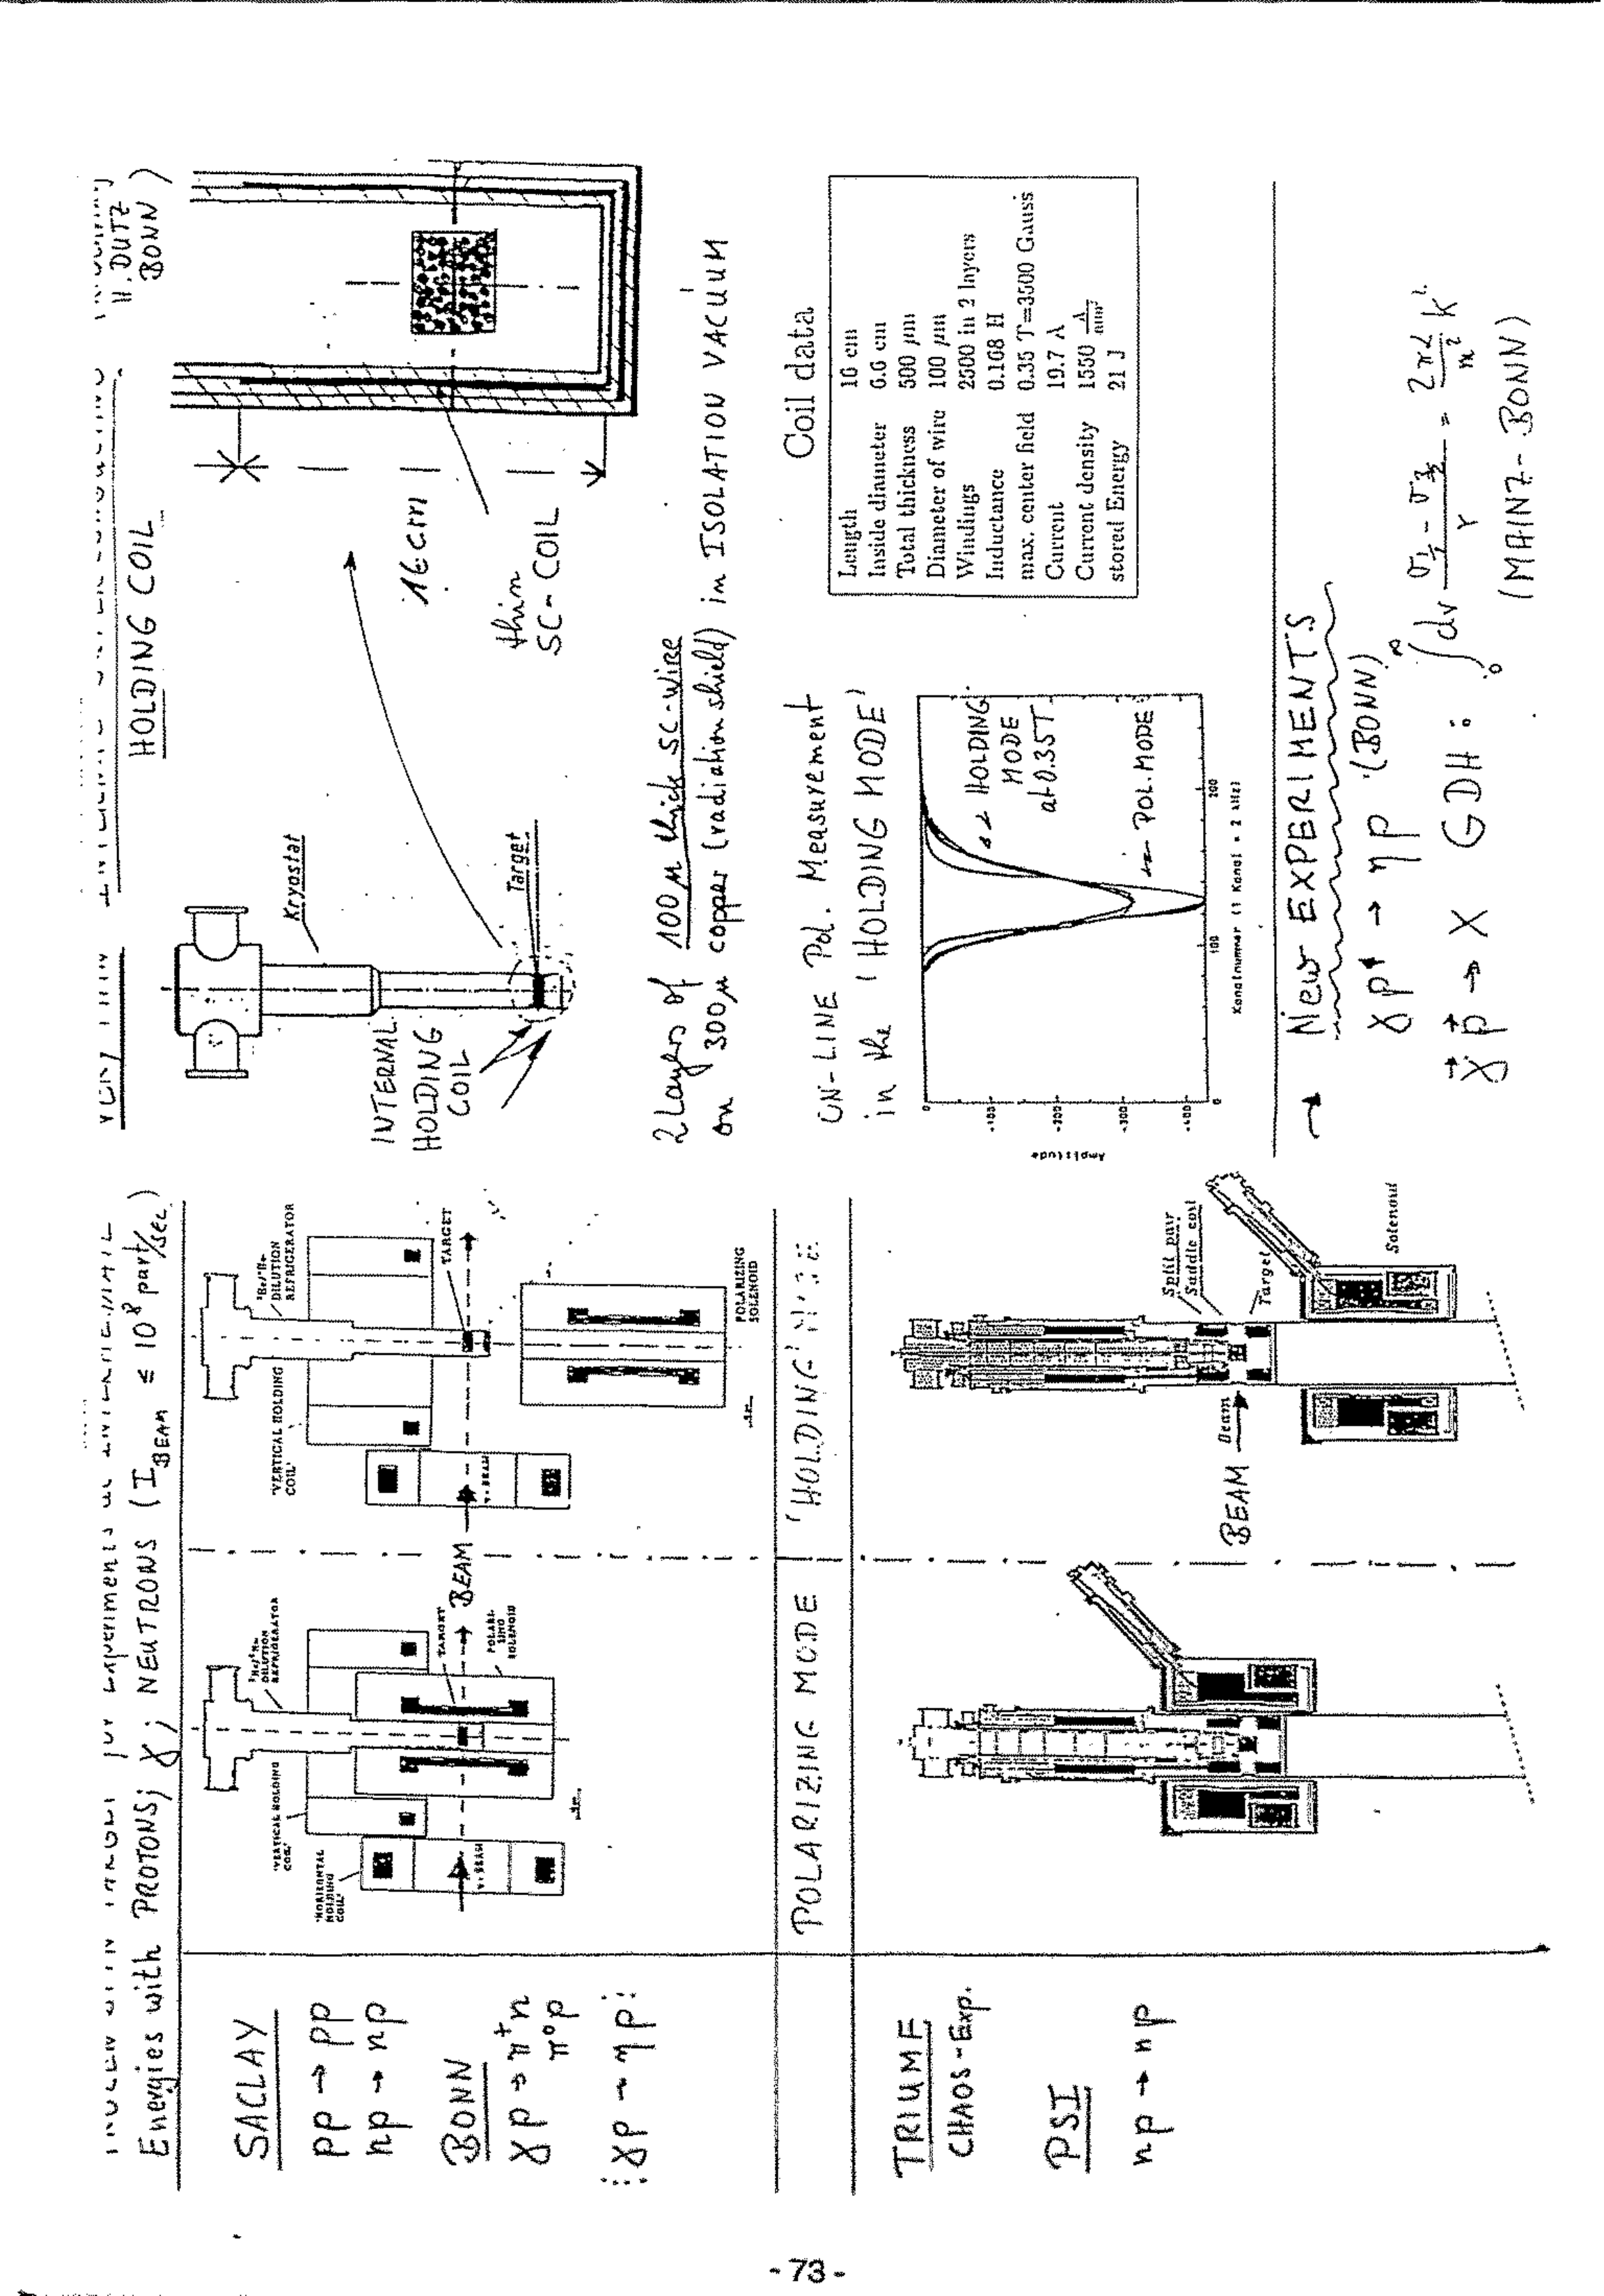 Energies with PROTONS; γ; NEUTRONS (I_BEAM ≤ 10⁸ part/sec)
SACLAY
pp → pp
np → np
BONN
γp → π⁺n
π⁰p
γp → ηp
³He/⁴He-
DILUTION
REFRIGERATOR
'VERTICAL HOLDING
COIL'
'HORIZONTAL
HOLDING
COIL'
TARGET
POLARI-
ZING
SOLENOID
BEAM
³He/⁴He-
DILUTION
REFRIGERATOR
'VERTICAL HOLDING
COIL'
TARGET
POLARIZING
SOLENOID
POLARIZING MODE
'HOLDING'
TRIUMF
CHAOS-Exp.
PSI
np → np
BEAM
Beam
Split pair
Saddle coil
Target
Solenoid
HOLDING COIL
H. DUTZ
BONN)
Kryostat
Target
INTERNAL
HOLDING
COIL
16 cm
thin
SC-COIL
2 Layers of 100μ thick SC-WIRE
on 300μ copper (radiation shield) in ISOLATION VACUUM
ON-LINE Pol. Measurement
in the 'HOLDING MODE'
Amplitude
0
-100
-200
-300
-400
HOLDING
MODE
at 0.35T
POL. MODE
0
100
200
Kanalnummer (1 Kanal = 2 kHz)
Coil data
Length 16 cm
Inside diameter 6.6 cm
Total thickness 500 μm
Diameter of wire 100 μm
Windings 2500 in 2 layers
Inductance 0.168 H
max. center field 0.35 T=3500 Gauss
Current 19.7 A
Current density 1550 A/mm²
stored Energy 21 J
→ New EXPERIMENTS
γp↑ → ηp (BONN)
γ⃗p⃗ → X GDH: ∫₀^∞ dν (σ½ - σ3/2)/ν = 2πα/m² k²
(MAINZ-BONN)
- 73 -